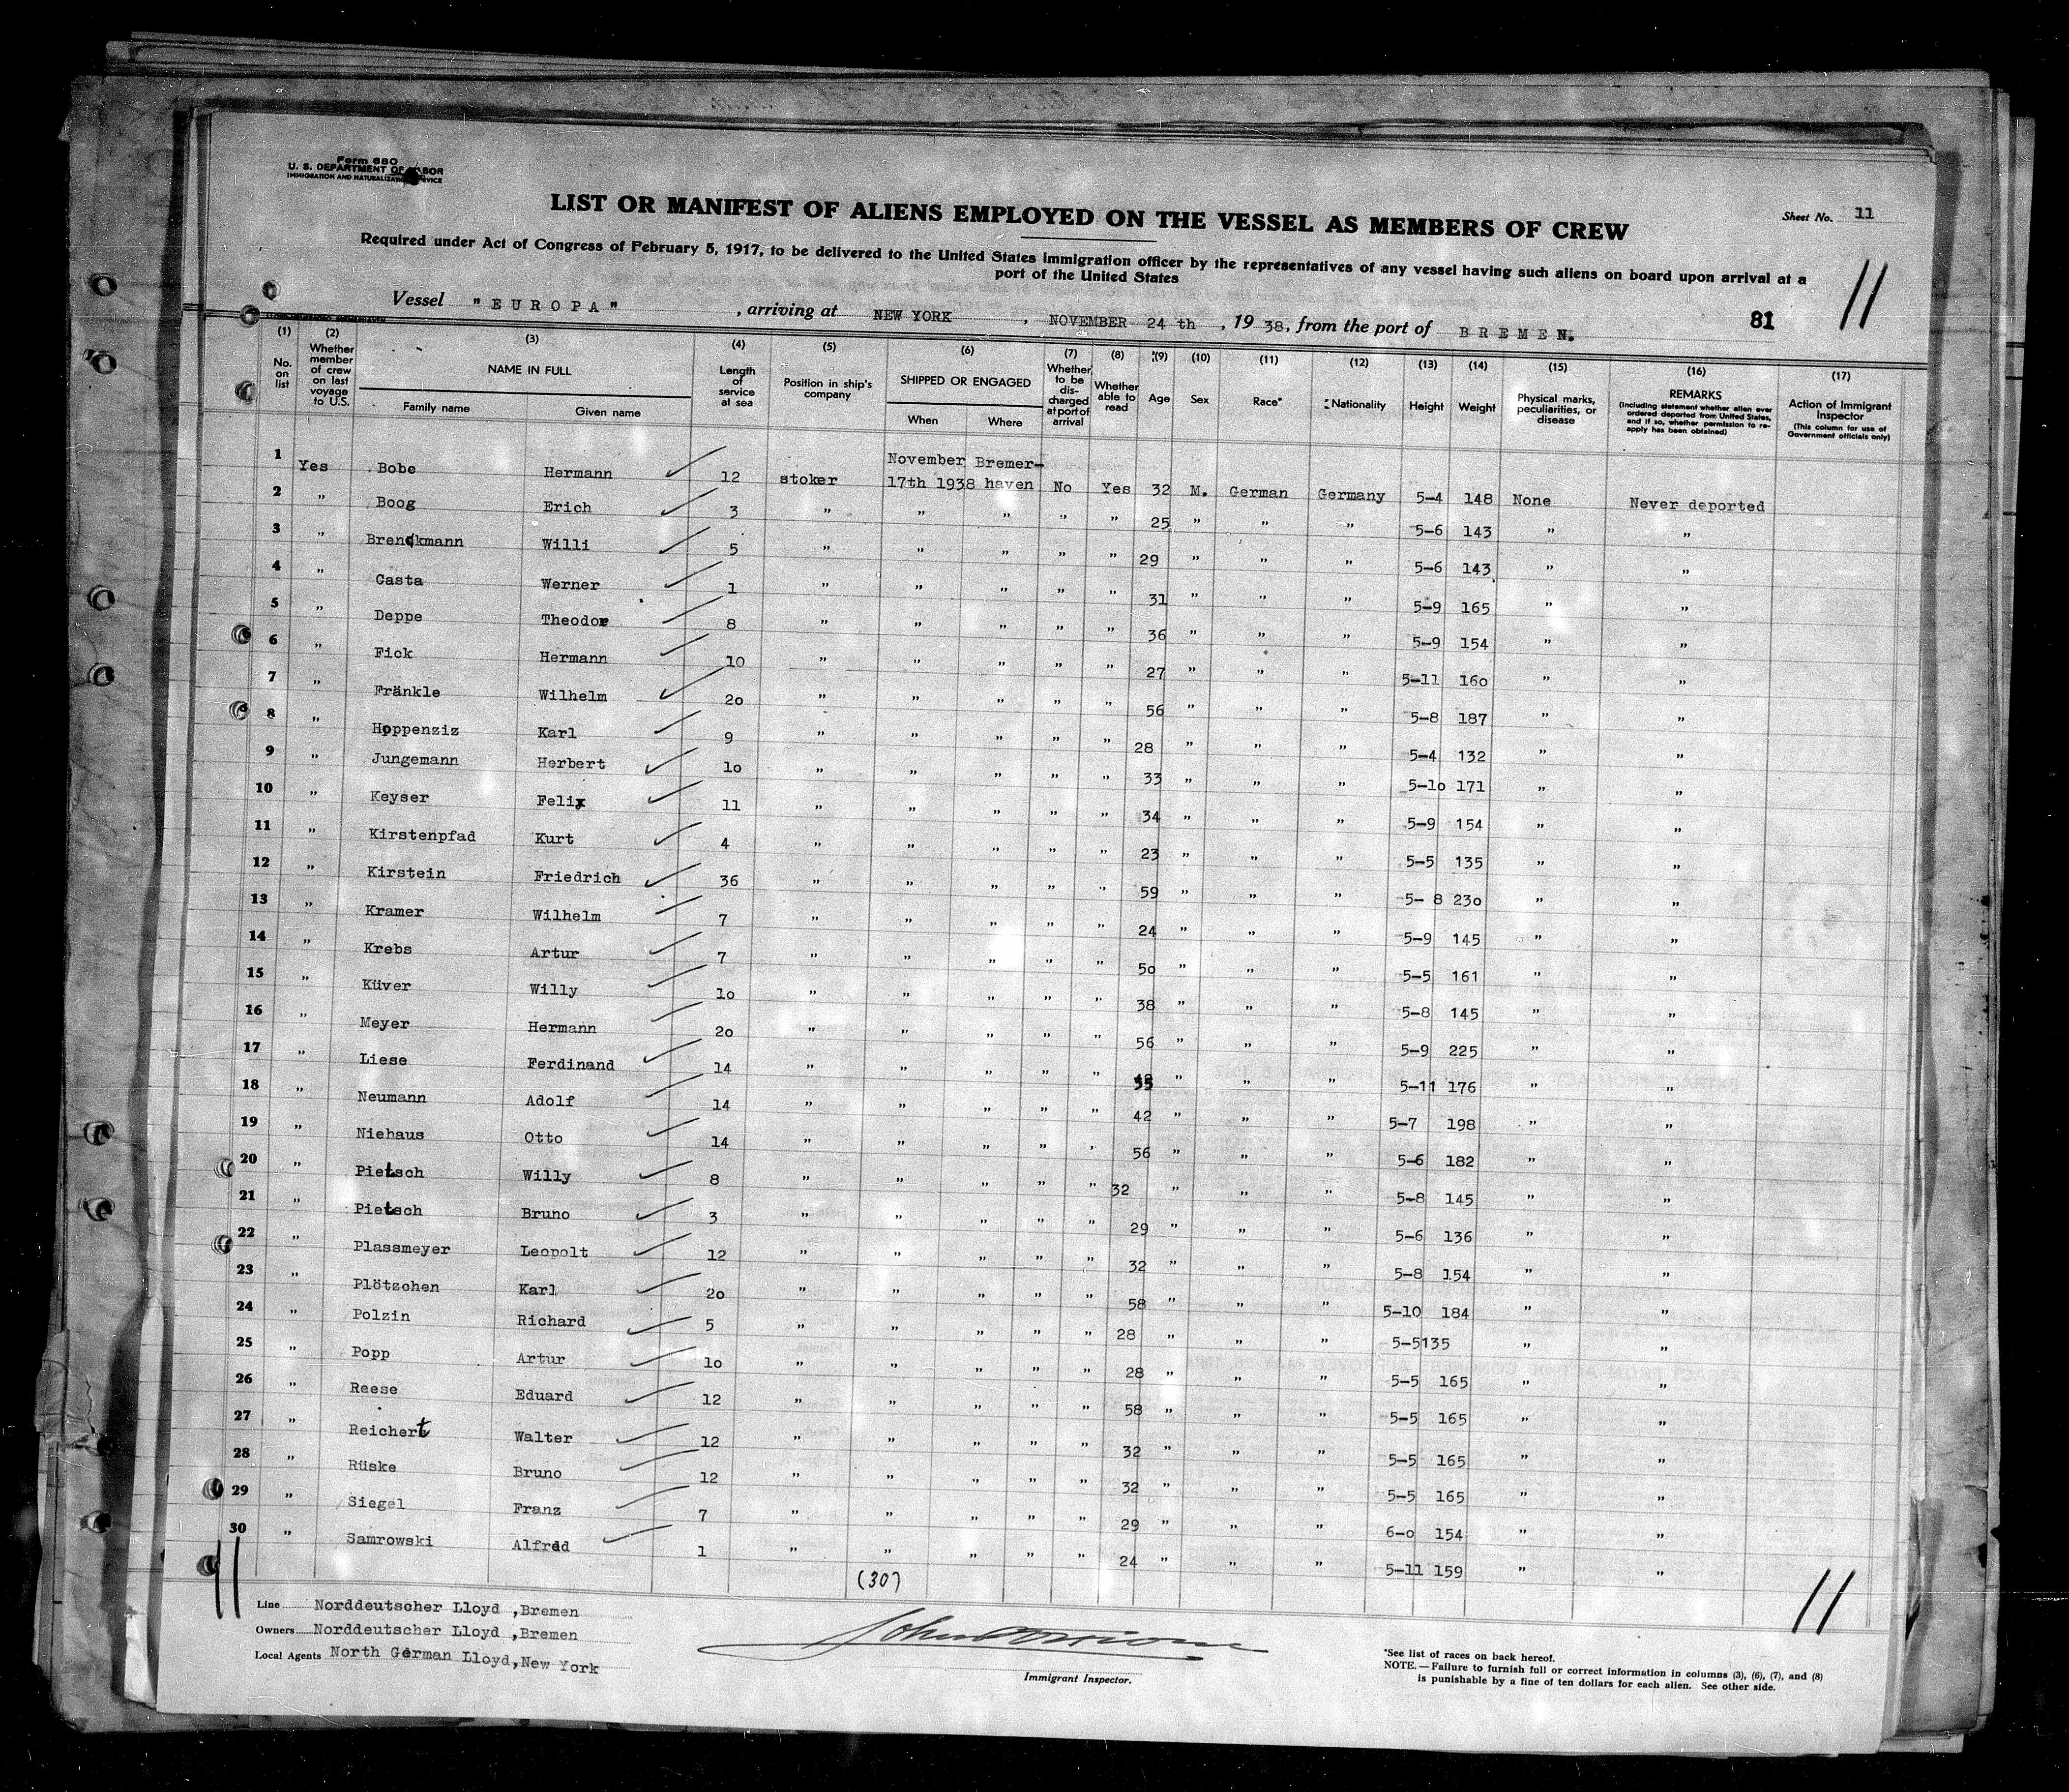 Form 680
U. S. DEPARTMENT OF LABOR
IMMIGRATION AND NATURALIZATION SERVICE
LIST OR MANIFEST OF ALIENS EMPLOYED ON THE VESSEL AS MEMBERS OF CREW
Sheet No. 11
Required under Act of Congress of February 5, 1917, to be delivered to the United States immigration officer by the representatives of any vessel having such aliens on board upon arrival at a
port of the United States
11
Vessel "EUROPA", arriving at NEW YORK, NOVEMBER 24 th, 19 38, from the port of BREMEN.
81
(1) No. on list
(2) Whether member of crew on last voyage to U.S.
(3) NAME IN FULL Family name Given name
(4) Length of service at sea
(5) Position in ship's company
(6) SHIPPED OR ENGAGED When Where
(7) Whether to be discharged at port of arrival
(8) Whether able to read
(9) Age
(10) Sex
(11) Race*
(12) Nationality
(13) Height
(14) Weight
(15) Physical marks, peculiarities, or disease
(16) REMARKS (Including statement whether alien ever ordered deported from United States, and if so, whether permission to re-apply has been obtained)
(17) Action of Immigrant Inspector (This column for use of Government officials only)
1 Yes Bobe Hermann 12 stoker November 17th 1938 Bremer-haven No Yes 32 M. German Germany 5-4 148 None Never deported
2 " Boog Erich 3 " " " " " 25 " " " 5-6 143 " "
3 " Brenckmann Willi 5 " " " " " 29 " " " 5-6 143 " "
4 " Casta Werner 1 " " " " " 31 " " " 5-9 165 " "
5 " Deppe Theodor 8 " " " " " 36 " " " 5-9 154 " "
6 " Fick Hermann 10 " " " " " 27 " " " 5-11 160 " "
7 " Fränkle Wilhelm 20 " " " " " 56 " " " 5-8 187 " "
8 " Hoppenziz Karl 9 " " " " " 28 " " " 5-4 132 " "
9 " Jungemann Herbert 10 " " " " " 33 " " " 5-10 171 " "
10 " Keyser Felix 11 " " " " " 34 " " " 5-9 154 " "
11 " Kirstenpfad Kurt 4 " " " " " 23 " " " 5-5 135 " "
12 " Kirstein Friedrich 36 " " " " " 59 " " " 5- 8 230 " "
13 " Kramer Wilhelm 7 " " " " " 24 " " " 5-9 145 " "
14 " Krebs Artur 7 " " " " " 50 " " " 5-5 161 " "
15 " Küver Willy 10 " " " " " 38 " " " 5-8 145 " "
16 " Meyer Hermann 20 " " " " " 56 " " " 5-9 225 " "
17 " Liese Ferdinand 14 " " " " " " " " 5-11 176 " "
18 " Neumann Adolf 14 " " " " " 42 " " " 5-7 198 " "
19 " Niehaus Otto 14 " " " " " 56 " " " 5-6 182 " "
20 " Pietsch Willy 8 " " " " " 32 " " " 5-8 145 " "
21 " Pietsch Bruno 3 " " " " " 29 " " " 5-6 136 " "
22 " Plassmeyer Leopolt 12 " " " " " 32 " " " 5-8 154 " "
23 " Plötzchen Karl 20 " " " " " 58 " " " 5-10 184 " "
24 " Polzin Richard 5 " " " " " 28 " " " 5-5 135 " "
25 " Popp Artur 10 " " " " " 28 " " " 5-5 165 " "
26 " Reese Eduard 12 " " " " " 58 " " " 5-5 165 " "
27 " Reichert Walter 12 " " " " " 32 " " " 5-5 165 " "
28 " Rüske Bruno 12 " " " " " 32 " " " 5-5 165 " "
29 " Siegel Franz 7 " " " " " 29 " " " 6-0 154 " "
30 " Samrowski Alfred 1 " " " " " 24 " " " 5-11 159 " "
(30)
11
11
Line Norddeutscher Lloyd ,Bremen
Owners Norddeutscher Lloyd ,Bremen
Local Agents North German Lloyd,New York
Immigrant Inspector.
*See list of races on back hereof.
NOTE.—Failure to furnish full or correct information in columns (3), (6), (7), and (8)
is punishable by a fine of ten dollars for each alien. See other side.